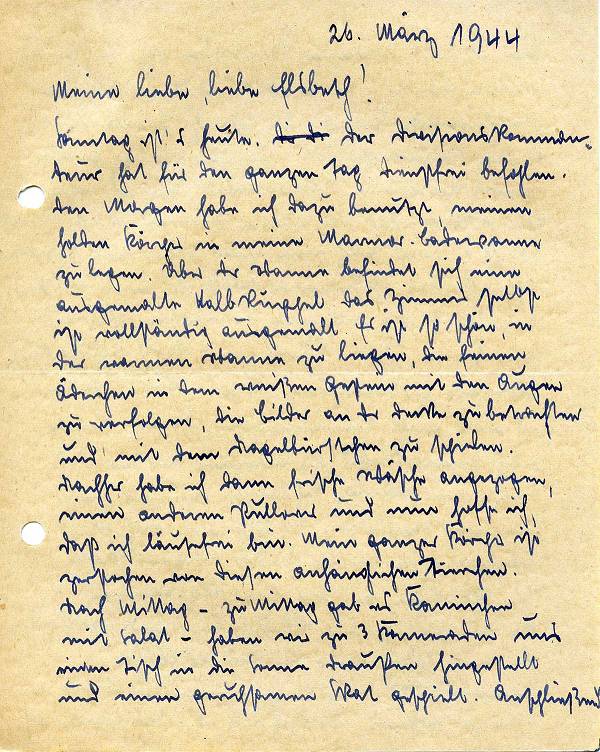 26. März 1944
Meine liebe, liebe Elsbeth!
Sonntag ist's heute. Der Divisionskomman-
deur hat für den ganzen Tag dienstfrei befohlen.
Den Morgen habe ich dazu benutzt, meinen
holden Körper in meine Marmor-badewanne
zu legen. Über der Wanne befindet sich eine
ausgemalte Halbkuppel das Zimmer selbst
ist vollständig ausgemalt. Es ist so schön, in
der warmen Wanne zu liegen, die feinen
Äderchen in dem weißen Gestein mit den Augen
zu verfolgen, die Bilder an der Decke zu betrachten
und mit dem Nagelbürstchen zu spielen.
Nachher habe ich dann frische Wäsche angezogen,
einen anderen Pullover und nun hoffe ich,
daß ich läusefrei bin. Mein ganzer Körper ist
zerstochen von diesen anhänglichen Tierchen.
Nach Mittag – zu Mittag gab es Kaninchen
mit Salat – haben wir zu 3 Kameraden uns
einen Tisch in die Sonne draußen hingestellt
und einen geruhsamen Skat gespielt. Anschließend